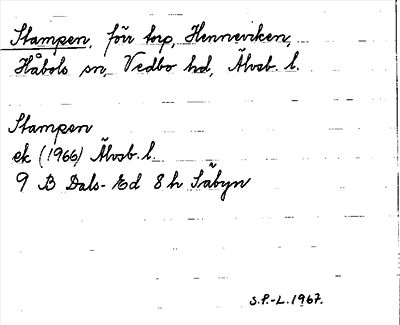 Stampen, förr torp, Henneviken,
Håbols sn, Vedbo hd, Älvsb. l.
Stampen
ek (1966) Älvsb. l.
9 B Dals-Ed 8 h Säbyn
S.P.-L. 1967.